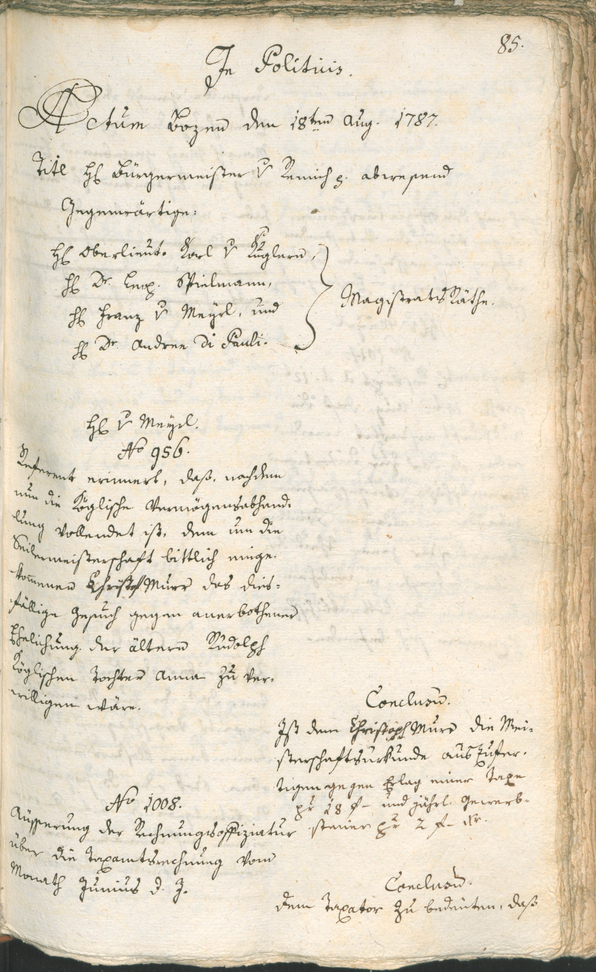 85.
In Politicis.
Actum Bozen den 18ten Aug. 1787.
Titl H Bürgermeister v Remich p. abwesend
Gegenwärtige:
H Oberlieut. Karl v Kuglern,
H Dr. Leop. Spielmann,
H Franz v Meyrl, und
H Dr Andree Di Pauli.
Magistrats Räthe.
H v Meyrl.
No 956.
Referent erinnert, daß, nachdem
nun die Köglische Vermögensabhand-
lung vollendet ist, dem um die
Seilermeisterschaft bittlich einge-
kommenen Christoph Murr das dies-
fällige Gesuch gegen anerbothener
Ehelichung der ältern Rudolph
Köglischen Tochter Anna zu ver-
willigen wäre.
Conclusum.
Ist dem Christoph Murr die Mei-
sterschaftsurkunde auszufer-
tigen gegen Erlag einer Taxe
pr 28 f und jährl. Gewerb-
steuer pr 2 f
No 1008.
Äusserung der Rechnungsoffiziatur
über die Taxamtsrechnung vom
Monath Junius d. J.
Conclusum.
Dem Taxator zu bedeuten, daß